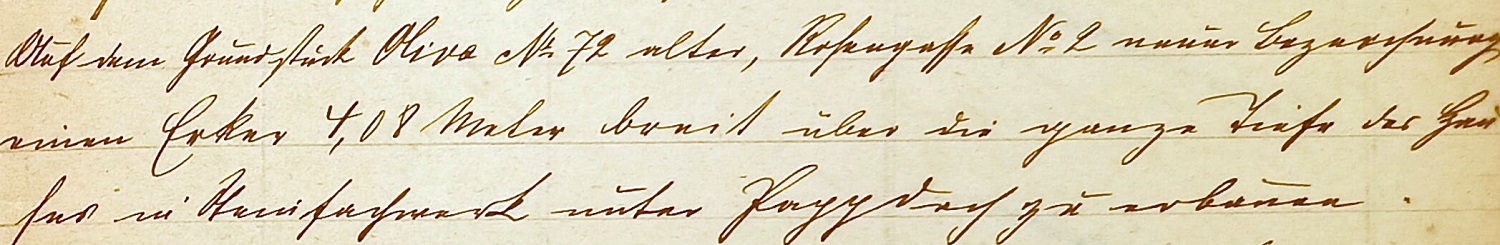 Auf dem Grundstück Oliva No 72 alter, Rosengasse No 2 neuer Bezeichnung
einen Erker 4,08 Meter breit über die ganze Tiefe des Hau
ses in Steinfachwerk unter Pappdach zu erbauen.